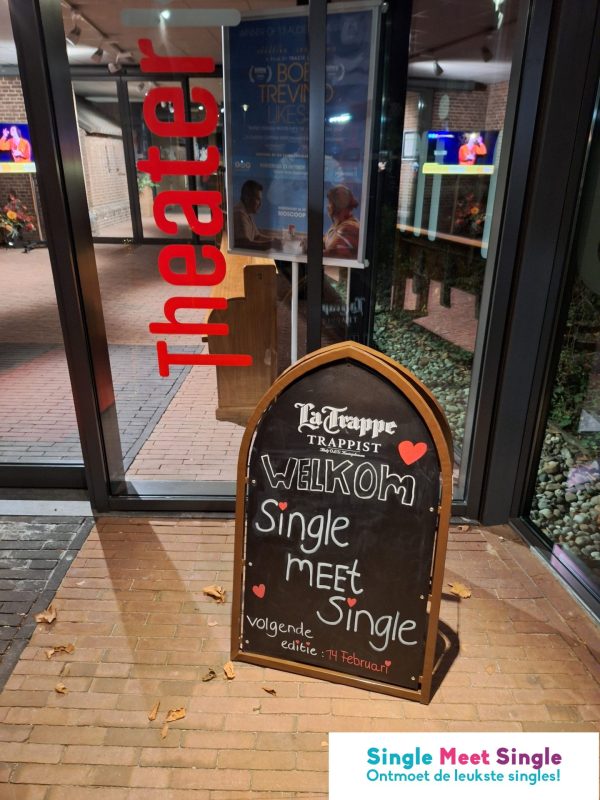 Theater
BOB
TREVINO
LIKES
BIOSCOOP
La Trappe
TRAPPIST
WELKOM
Single
MEEt
Single
volgende
editie : 14 Februari
Single Meet Single
Ontmoet de leukste singles!